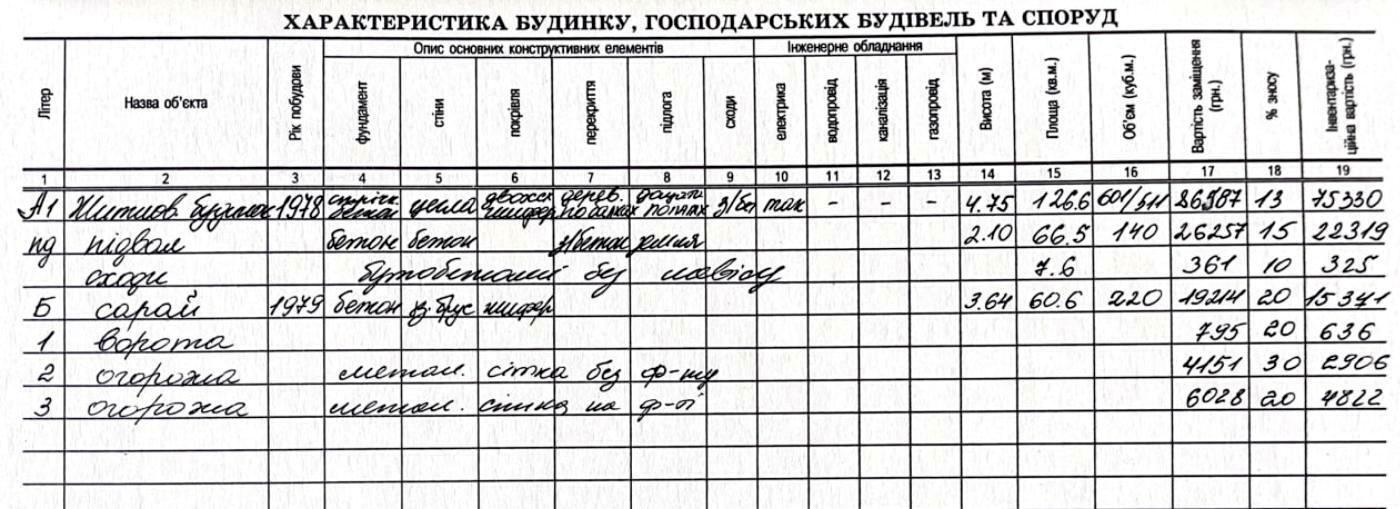 ХАРАКТЕРИСТИКА БУДИНКУ, ГОСПОДАРСЬКИХ БУДІВЕЛЬ ТА СПОРУД
Літер Назва об'єкта Рік побудови Опис основних конструктивних елементів Інженерне обладнання Висота (м) Площа (кв.м.) Об'єм (куб.м.) Вартість заміщення (грн.) % зносу Інвентариза-ційна вартість (грн.)
фундамент стіни покрівля перекриття підлога сходи електрика водопровід каналізація газопровід
1 2 3 4 5 6 7 8 9 10 11 12 13 14 15 16 17 18 19
А1 Житлов. будинок 1978 бетон цегла шифер дерев. по балках дощата з/бет так - - - 4.75 126.6 601/511 86587 13 75330
пд підвал бетон бетон з/бетон земля 2.10 66.5 140 26257 15 22319
сходи бутобетонні без навісу 7.6 361 10 325
Б сарай 1979 бетон шифер 3.64 60.6 220 19214 20 15341
1 ворота 795 20 636
2 огорожа метал. сітка без ф-ту 4151 30 2906
3 огорожа метал. сітка на ф-ті 6028 20 4822